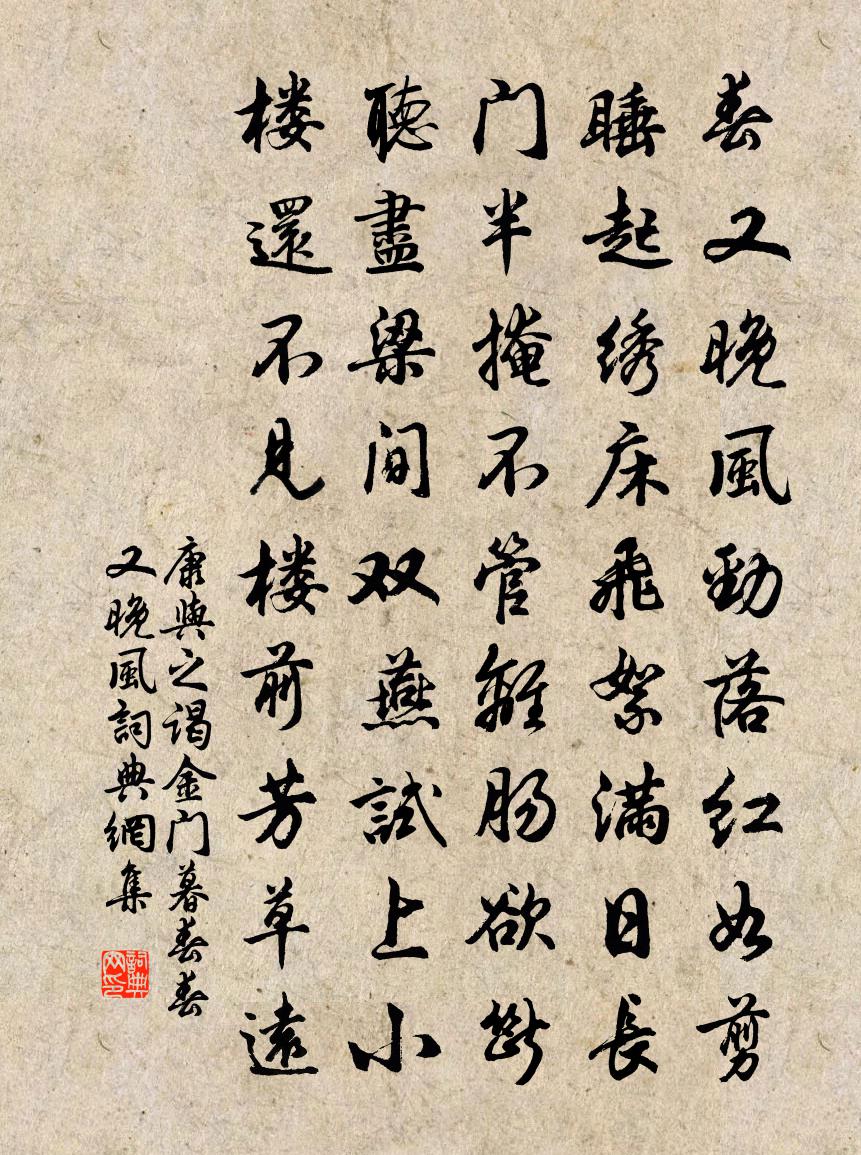 春又晚風勁落红如剪
睡起绣床飛絮滿日長
门半掩不管離肠欲斷
聽盡梁间双燕試上小
楼還不見楼前芳草遠
康與之谒金门暮春春
又晚風詞典網集
詞典
网印